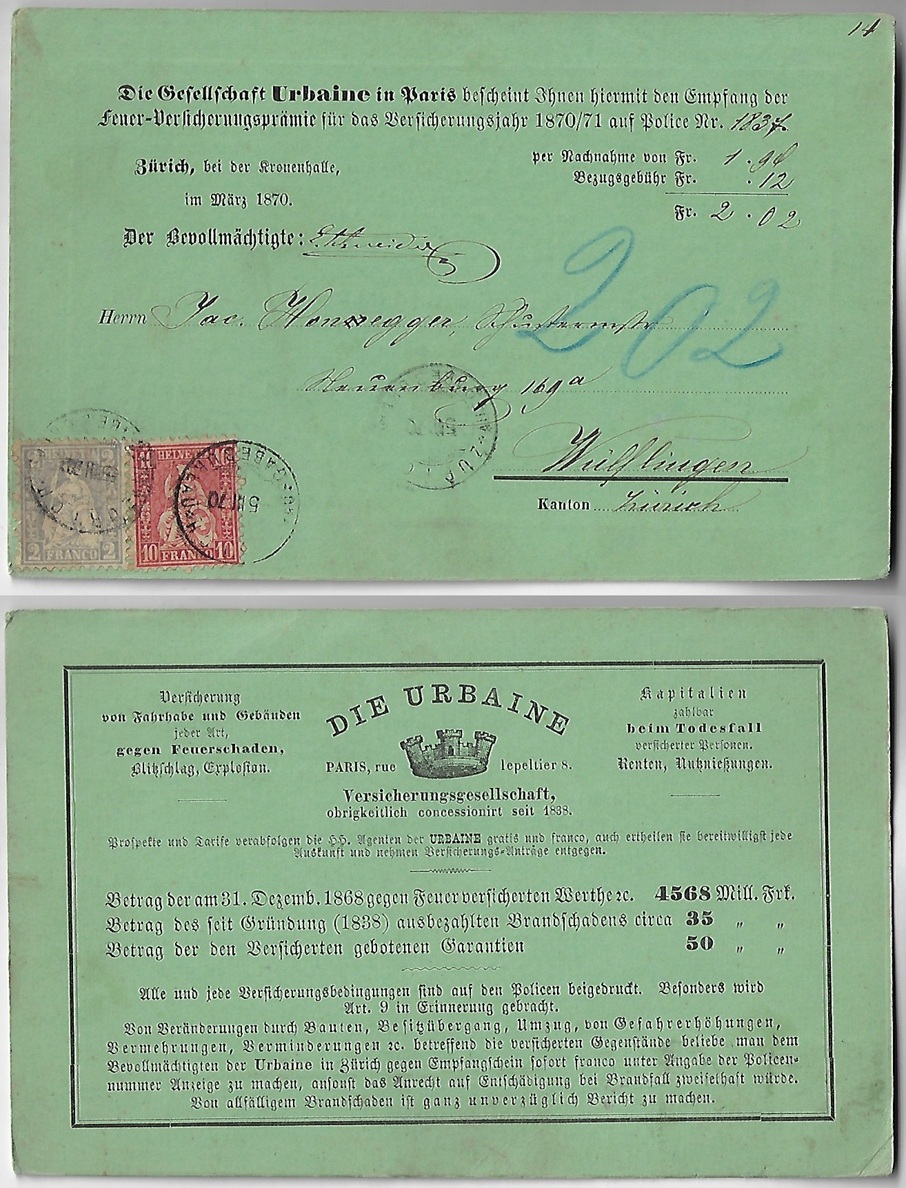 14
Die Gesellschaft Urbaine in Paris bescheint Ihnen hiermit den Empfang der
Feuer-Versicherungsprämie für das Versicherungsjahr 1870/71 auf Police Nr. 1837
Zürich, bei der Kronenhalle,
im März 1870.
per Nachnahme von Fr. 1.90
Bezugsgebühr Fr. .12
Fr. 2.02
Der Bevollmächtigte:
202
Herrn Jac. Honegger, Schustermstr
Neuenburg 169a
Wülflingen
Kanton Zürich
HELVETIA HELVETIA
2 FRANCO 2 10 FRANCO 10
DIE URBAINE
PARIS, rue lepeltier 8.
Versicherungsgesellschaft,
obrigkeitlich concessionirt seit 1838.
Versicherung
von Fahrhabe und Gebäuden
jeder Art,
gegen Feuerschaden,
Blitzschlag, Explosion.
Kapitalien
zahlbar
beim Todesfall
versicherter Personen.
Renten, Nutznießungen.
Prospekte und Tarife verabfolgen die HH. Agenten der URBAINE gratis und franco, auch ertheilen sie bereitwilligst jede
Auskunft und nehmen Versicherungs-Anträge entgegen.
Betrag der am 31. Dezemb. 1868 gegen Feuer versicherten Werthe ꝛc. 4568 Mill. Frk.
Betrag des seit Gründung (1838) ausbezahlten Brandschadens circa 35 „ „
Betrag der den Versicherten gebotenen Garantien 50 „ „
Alle und jede Versicherungsbedingungen sind auf den Policen beigedruckt. Besonders wird
Art. 9 in Erinnerung gebracht.
Von Veränderungen durch Bauten, Besitzübergang, Umzug, von Gefahrerhöhungen,
Vermehrungen, Verminderungen ꝛc. betreffend die versicherten Gegenstände beliebe man dem
Bevollmächtigten der Urbaine in Zürich gegen Empfangschein sofort franco unter Angabe der Policen-
nummer Anzeige zu machen, ansonst das Anrecht auf Entschädigung bei Brandfall zweifelhaft würde.
Von allfälligem Brandschaden ist ganz unverzüglich Bericht zu machen.